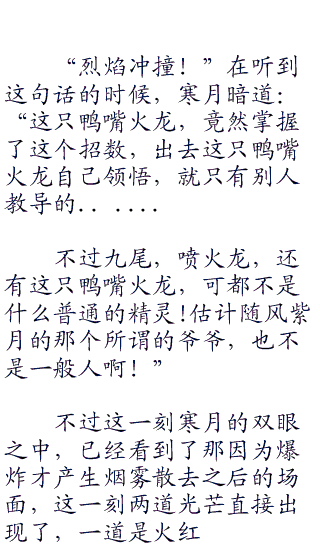 “烈焰冲撞！”在听到
这句话的时候，寒月暗道：
“这只鸭嘴火龙，竟然掌握
了这个招数，出去这只鸭嘴
火龙自己领悟，就只有别人
教导的．．．．．．．
不过九尾，喷火龙，还
有这只鸭嘴火龙，可都不是
什么普通的精灵!估计随风紫
月的那个所谓的爷爷，也不
是一般人啊！”
不过这一刻寒月的双眼
之中，已经看到了那因为爆
炸才产生烟雾散去之后的场
面，这一刻两道光芒直接出
现了，一道是火红